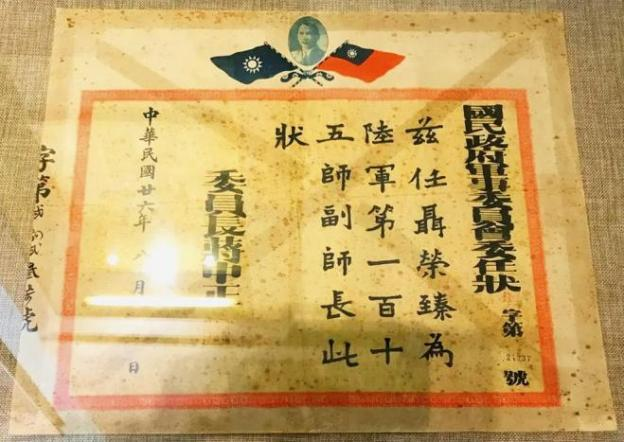 國民政府軍事委員會委任狀
字第21737號
茲任聶榮臻為
陸軍第一百十
五師副師長此
狀
委員長蔣中正
中華民國廿六年八月 日
字第
號